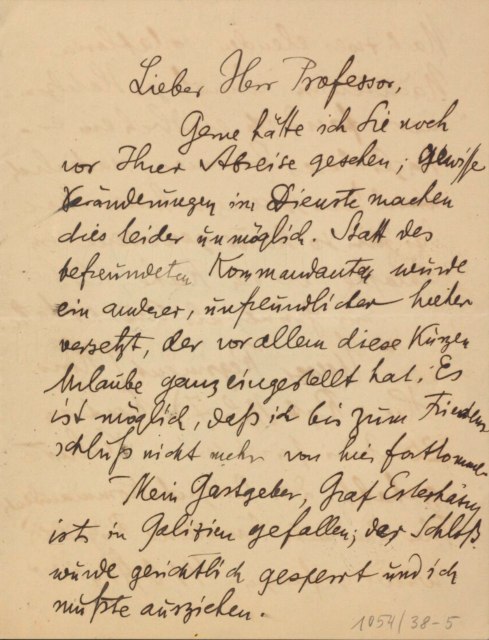 Lieber Herr Professor,
Gerne hätte ich Sie noch
vor Ihrer Abreise gesehen; gewisse
Veränderungen im Dienste machen
dies leider unmöglich. Statt des
befreundeten Kommandanten wurde
ein anderer, unfreundlicher hieher
versetzt, der vor allem diese kurzen
Urlaube ganz eingestellt hat. Es
ist möglich, daß ich bis zum Friedens
schluß nicht mehr von hier fortkomme.
Mein Gastgeber, Graf Esterházy
ist in Galizien gefallen; das Schloß
wurde gerichtlich gesperrt und ich
mußte ausziehen.
1054/38-5